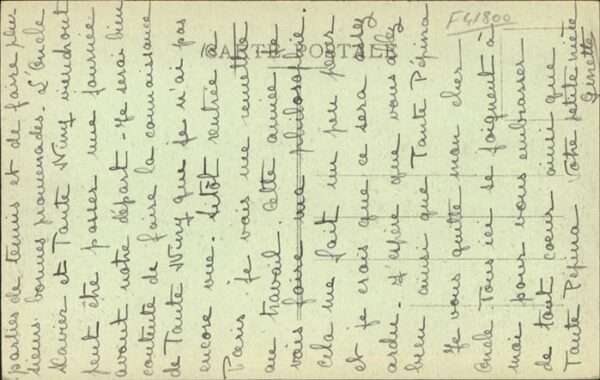 parties de tennis et de faire plu-
sieurs bonnes promenades. L'Oncle
Xavier et Tante Winy viendront
peut être passer une journée
avant notre départ - Je serai bien
contente de faire la connaissance
de Tante Winy que je n'ai pas
encore vue. Sitôt rentrée à
Paris je vais me remettre
au travail. Cette année je
vais faire ma philosophie.
Cela me fait un peu peur
et je crois que ce sera assez
ardu. J'espère que vous allez
bien ainsi que Tante Pépina
Je vous quitte mon cher
Oncle. Tous ici se joignent à
moi pour vous embrasser
de tout coeur ainsi que
Tante Pépina Votre petite nièce
Ginette
CARTE POSTALE
F41800